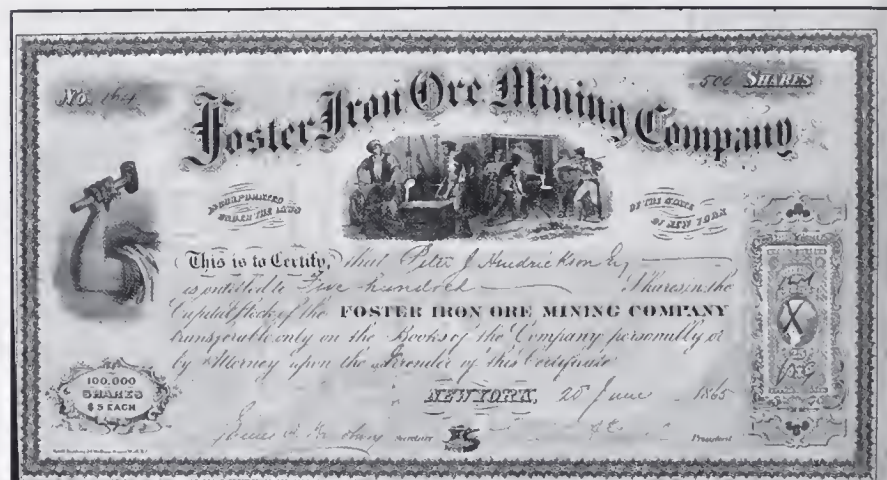 No. 164
500 SHARES
Foster Iron Ore Mining Company
INCORPORATED UNDER THE LAWS
OF THE STATE OF NEW YORK
This is to Certify, that Peter J. Hendrickson Esq
is entitled to Five hundred Shares in the
Capital Stock of the FOSTER IRON ORE MINING COMPANY
transferable only on the Books of the Company personally or
by Attorney upon the Surrender of this Certificate
100,000
SHARES
$5 EACH
NEW YORK, 28 June 1865
James
President